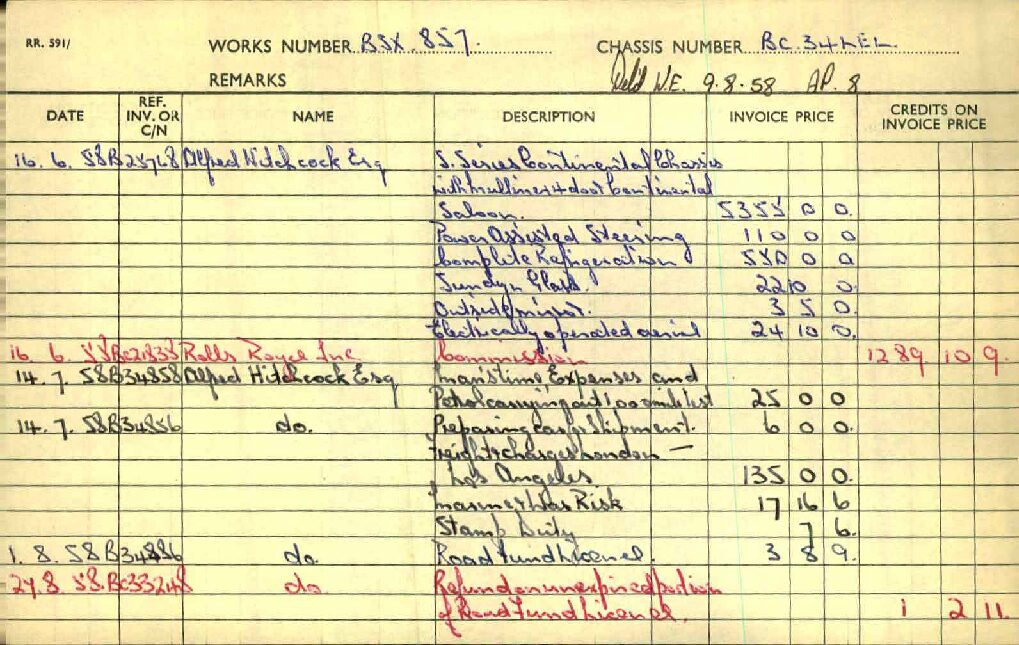 RR. 591/ WORKS NUMBER BSX. 857. CHASSIS NUMBER BC.34LEL
REMARKS Deld N.E. 9.8.58 AP. 8
DATE REF. INV. OR C/N NAME DESCRIPTION INVOICE PRICE CREDITS ON INVOICE PRICE
16. 6. 58 B25768 Alfred Hitchcock Esq S. Series Continental Chassis
with Mulliner 4 door Continental
Saloon. 5355 0 0.
Power Assisted Steering 110 0 0
Complete Refrigeration 550 0 0
Sundym Glass. 22 10 0.
Outside mirror. 3 5 0.
Electrically operated aerial 24 10 0.
16. 6. 58 BC21835 Rolls Royce Inc Commission 1289 10 9.
14. 7. 58 B34858 Alfred Hitchcock Esq Man's time Expenses and
Petrol carrying out 100 mile test 25 0 0
14. 7. 58 B34856 do. Preparing car for Shipment. 6 0 0.
Freight & charges London —
Los Angeles 135 0 0.
Marine & War Risk 17 16 6
Stamp Duty 7 6.
1. 8. 58 B34886 do. Road Fund Licence. 3 8 9.
27. 8. 58. BC33248 do. Refund on unexpired portion
of Road Fund Licence. 1 2 11.